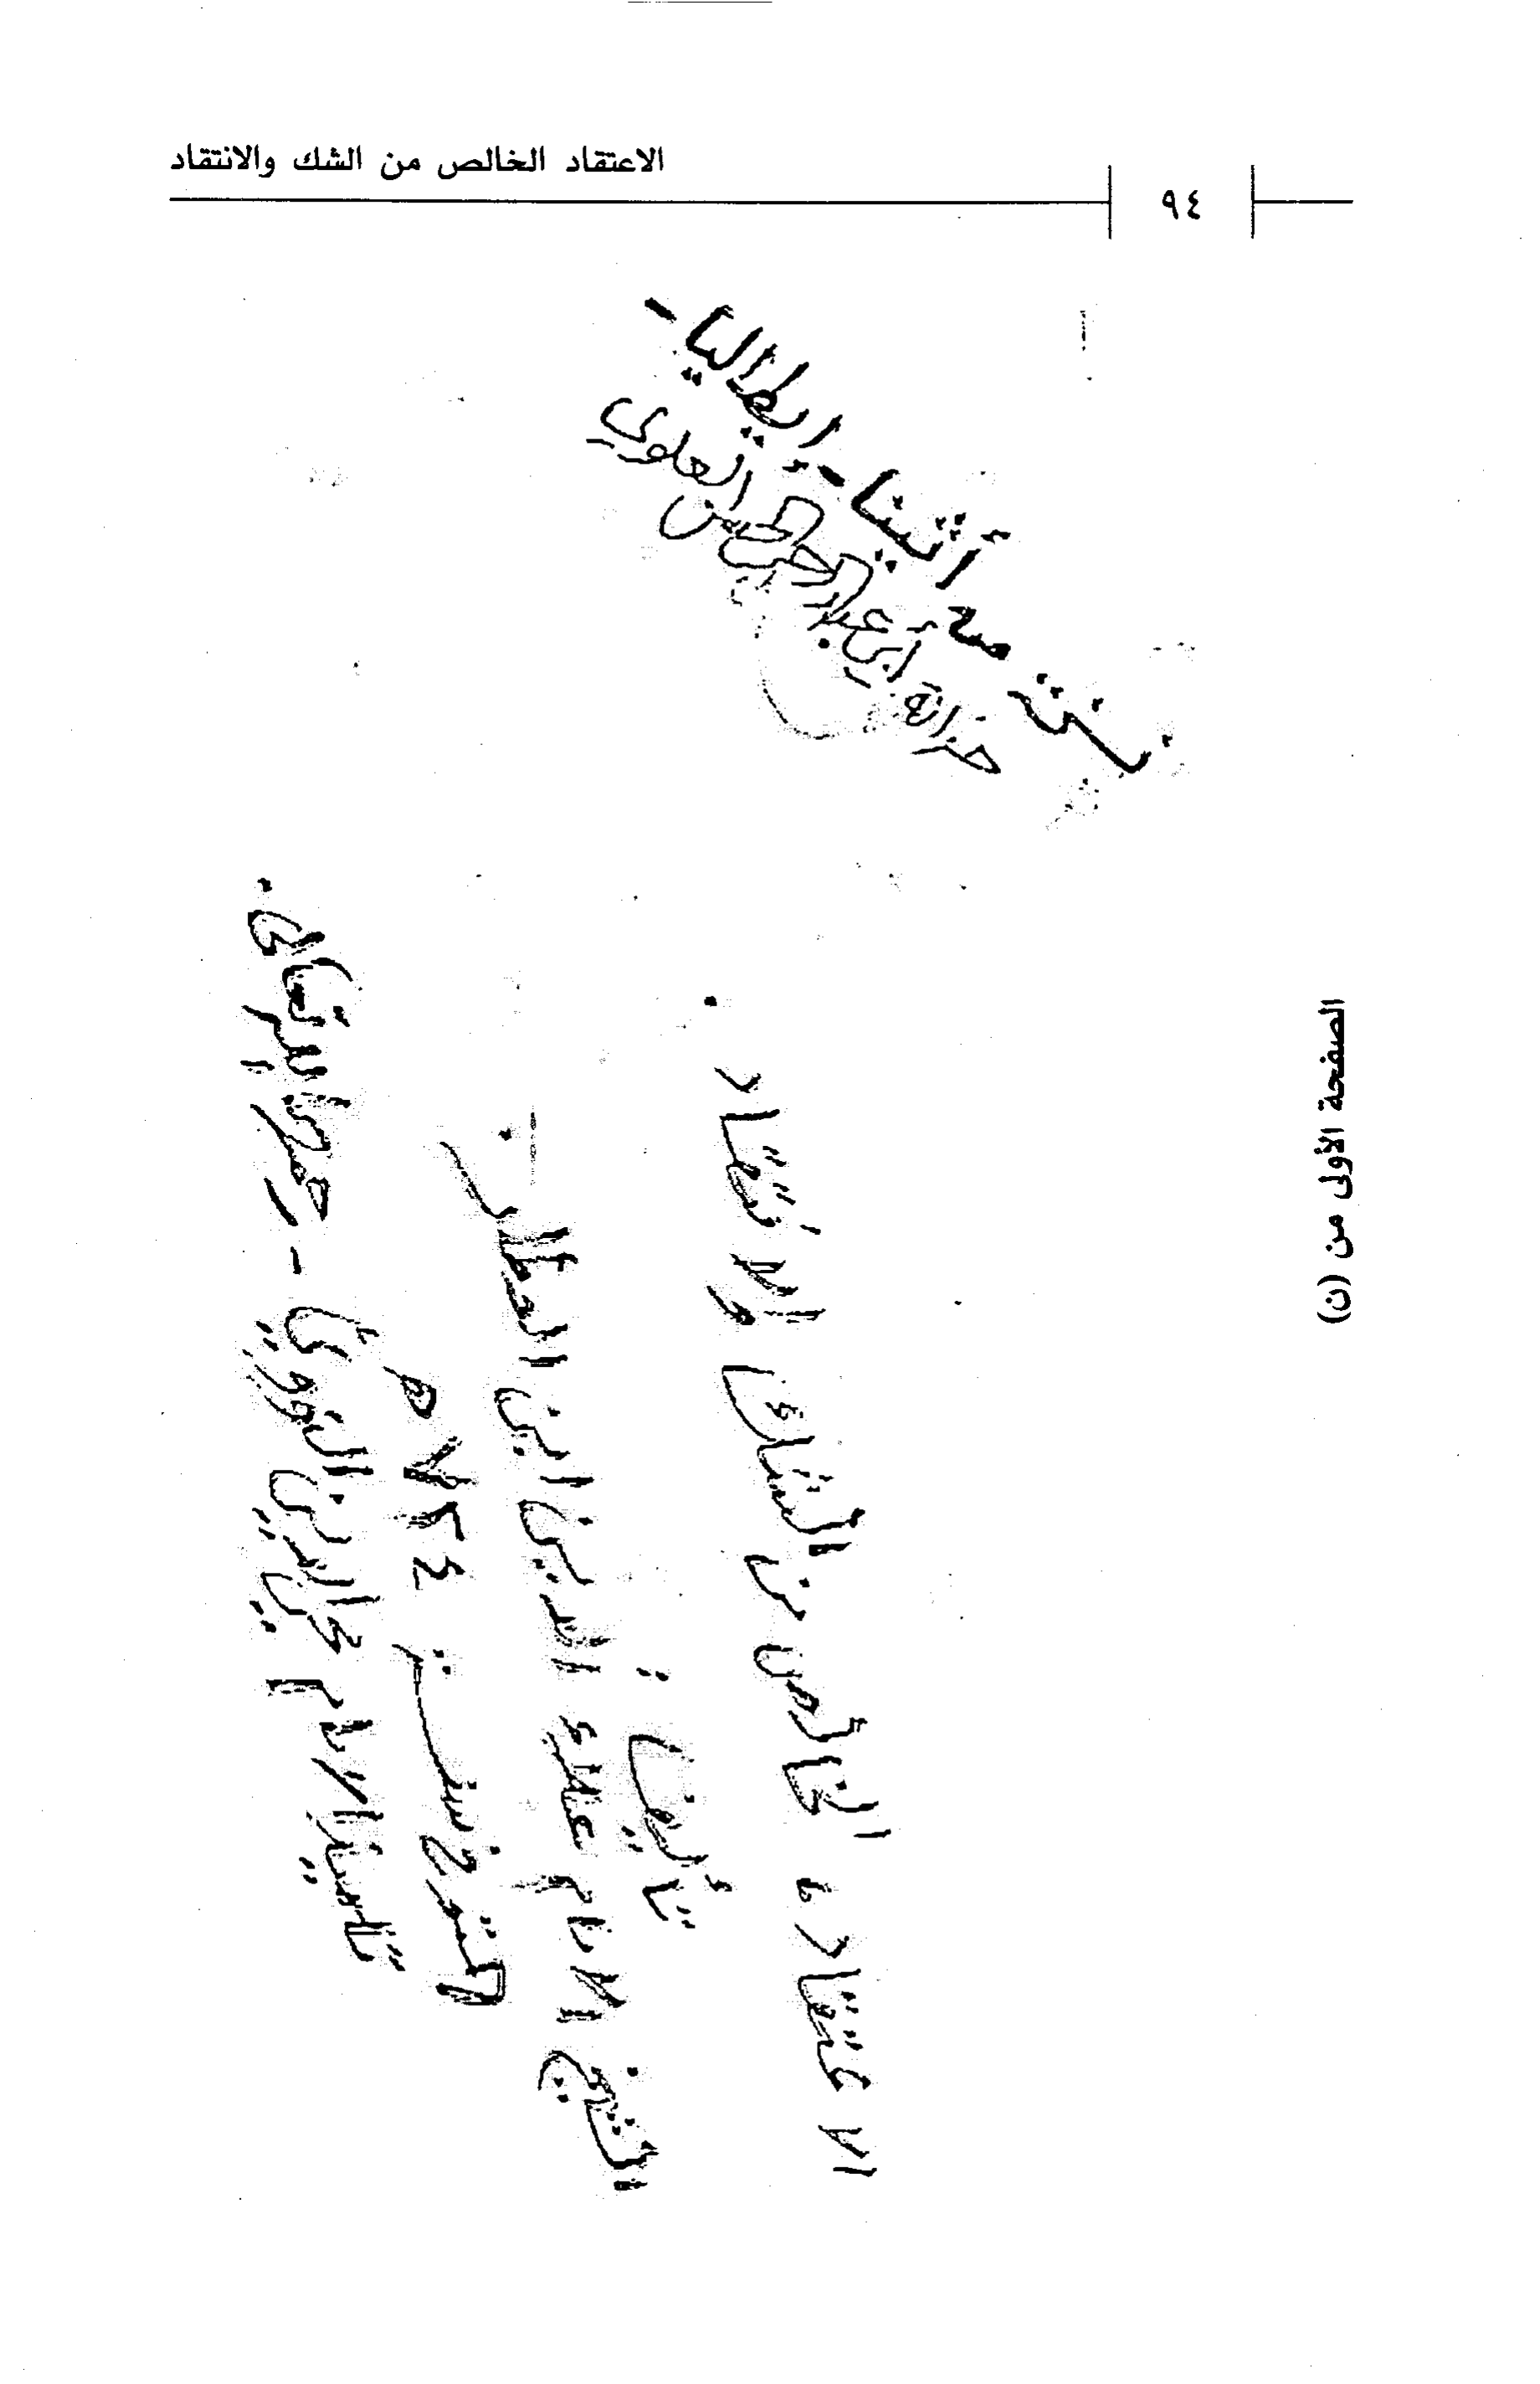 الاعتقاد الخالص من الشك والانتقاد
٩٤
نسخة من أثينا - إيطاليا -
خزانة أبي عبد الرحمن العلوي
الاعتقاد الخالص من الشك والانتقاد.
تأليف:
الشيخ الامام علاء الدين ابن العطار
المتوفى سنة ٧٢٤ ه
تلميذ الامام محي الدين النووي - رحمهما الله تعالى.
الصفحة الأولى من (ن)